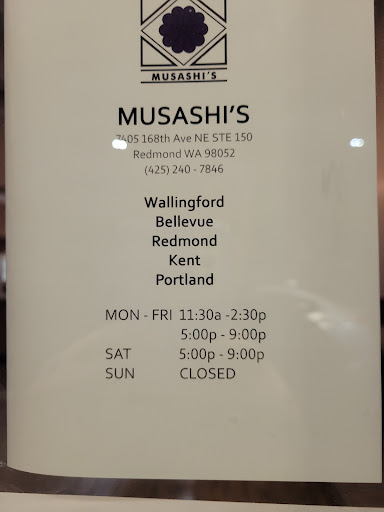 MUSASHI'S
MUSASHI'S
7405 168th Ave NE STE 150
Redmond WA 98052
(425) 240 - 7846
Wallingford
Bellevue
Redmond
Kent
Portland
MON - FRI 11:30a -2:30p
5:00p - 9:00p
SAT 5:00p - 9:00p
SUN CLOSED